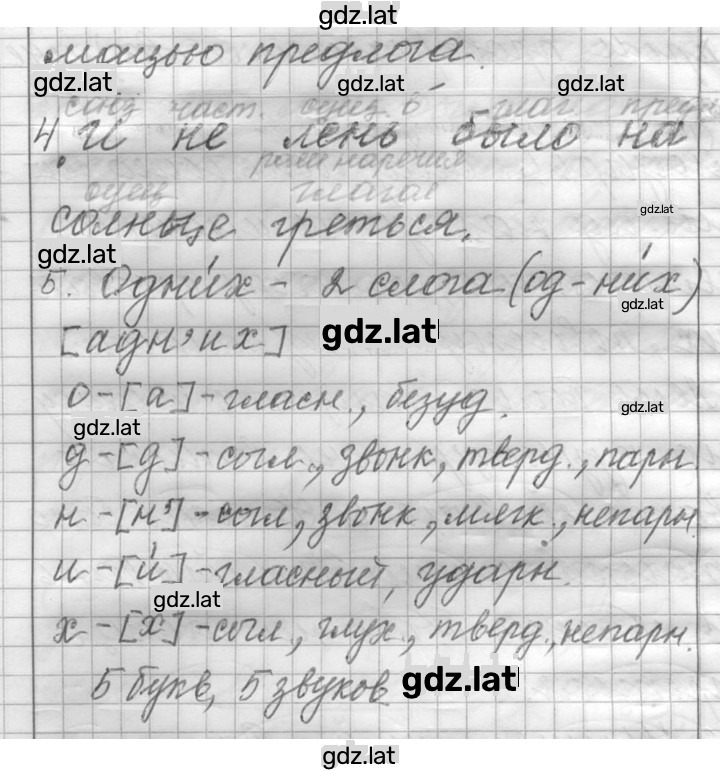 gdz.lat
мощью предлога.
gdz.lat gdz.lat gdz.lat
союз част. сущ. в глаг. предл.
4. И не лень было на
роли наречия
сущ глагол
солнце греться.
gdz.lat
gdz.lat
5. Одни́х - 2 слога (од-ни́х)
gdz.lat
[адн'их] gdz.lat
о-[а]-гласн., безуд.
gdz.lat
gdz.lat
д-[д]-согл., звонк, тверд., парн.
н-[н']-согл, звонк, мягк., непарн.
и-[и́]-гласный, ударн.
gdz.lat
х-[х]-согл, глух., тверд., непарн.
5 букв, 5 звуков gdz.lat
gdz.lat